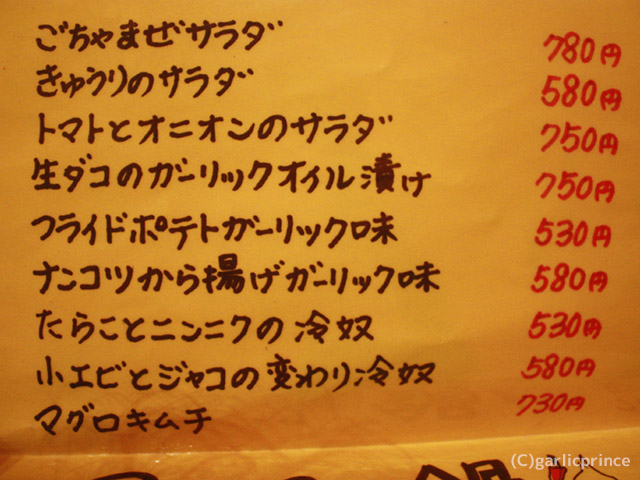 ごちゃまぜサラダ 780円
きゅうりのサラダ 580円
トマトとオニオンのサラダ 750円
生ダコのガーリックオイル漬け 750円
フライドポテトガーリック味 530円
ナンコツから揚げガーリック味 580円
たらことニンニクの冷奴 530円
小エビとジャコの変わり冷奴 580円
マグロキムチ 730円
(C)garlicprince